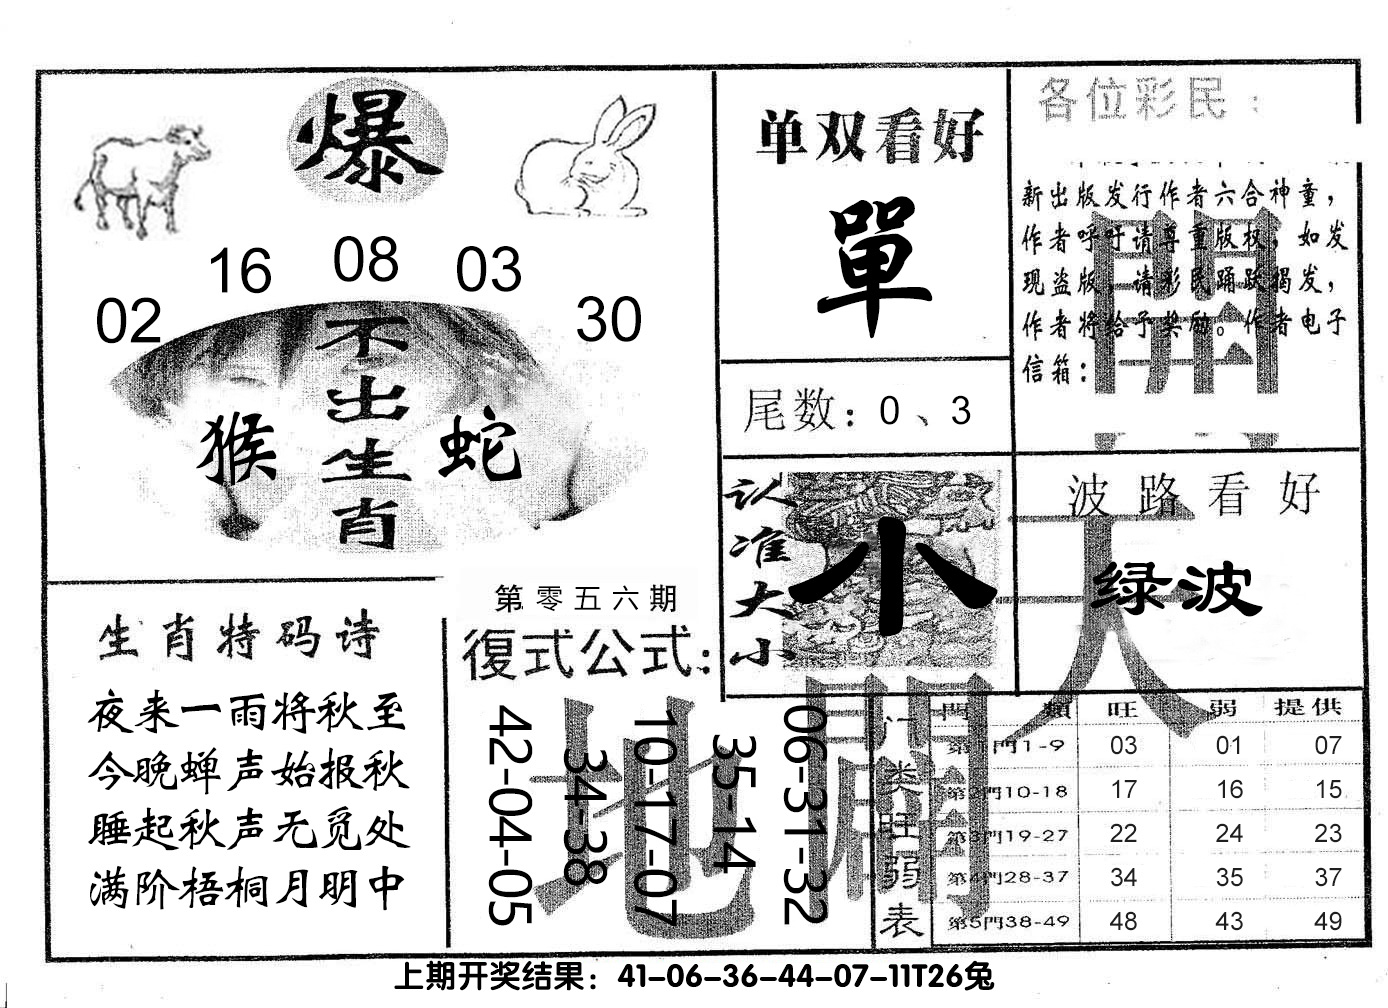 爆
02 16 08 03 30
不出生肖
猴 蛇
单双看好
單
尾数：0、3
认准大小
小
各位彩民：
新出版发行作者六合神童，
作者呼吁请尊重版权，如发
现盗版，请彩民踊跃揭发，
作者将给予奖励。作者电子
信箱：
波路看好
绿波
天
開
地
開
生肖特码诗
夜来一雨将秋至
今晚蝉声始报秋
睡起秋声无觅处
满阶梧桐月明中
第零五六期
復式公式：
42-04-05
34-38
10-17-07
35-14
06-31-32
门类旺弱表
門類 旺 弱 提供
第1門1-9 03 01 07
第2門10-18 17 16 15
第3門19-27 22 24 23
第4門28-37 34 35 37
第5門38-49 48 43 49
上期开奖结果：41-06-36-44-07-11T26兔